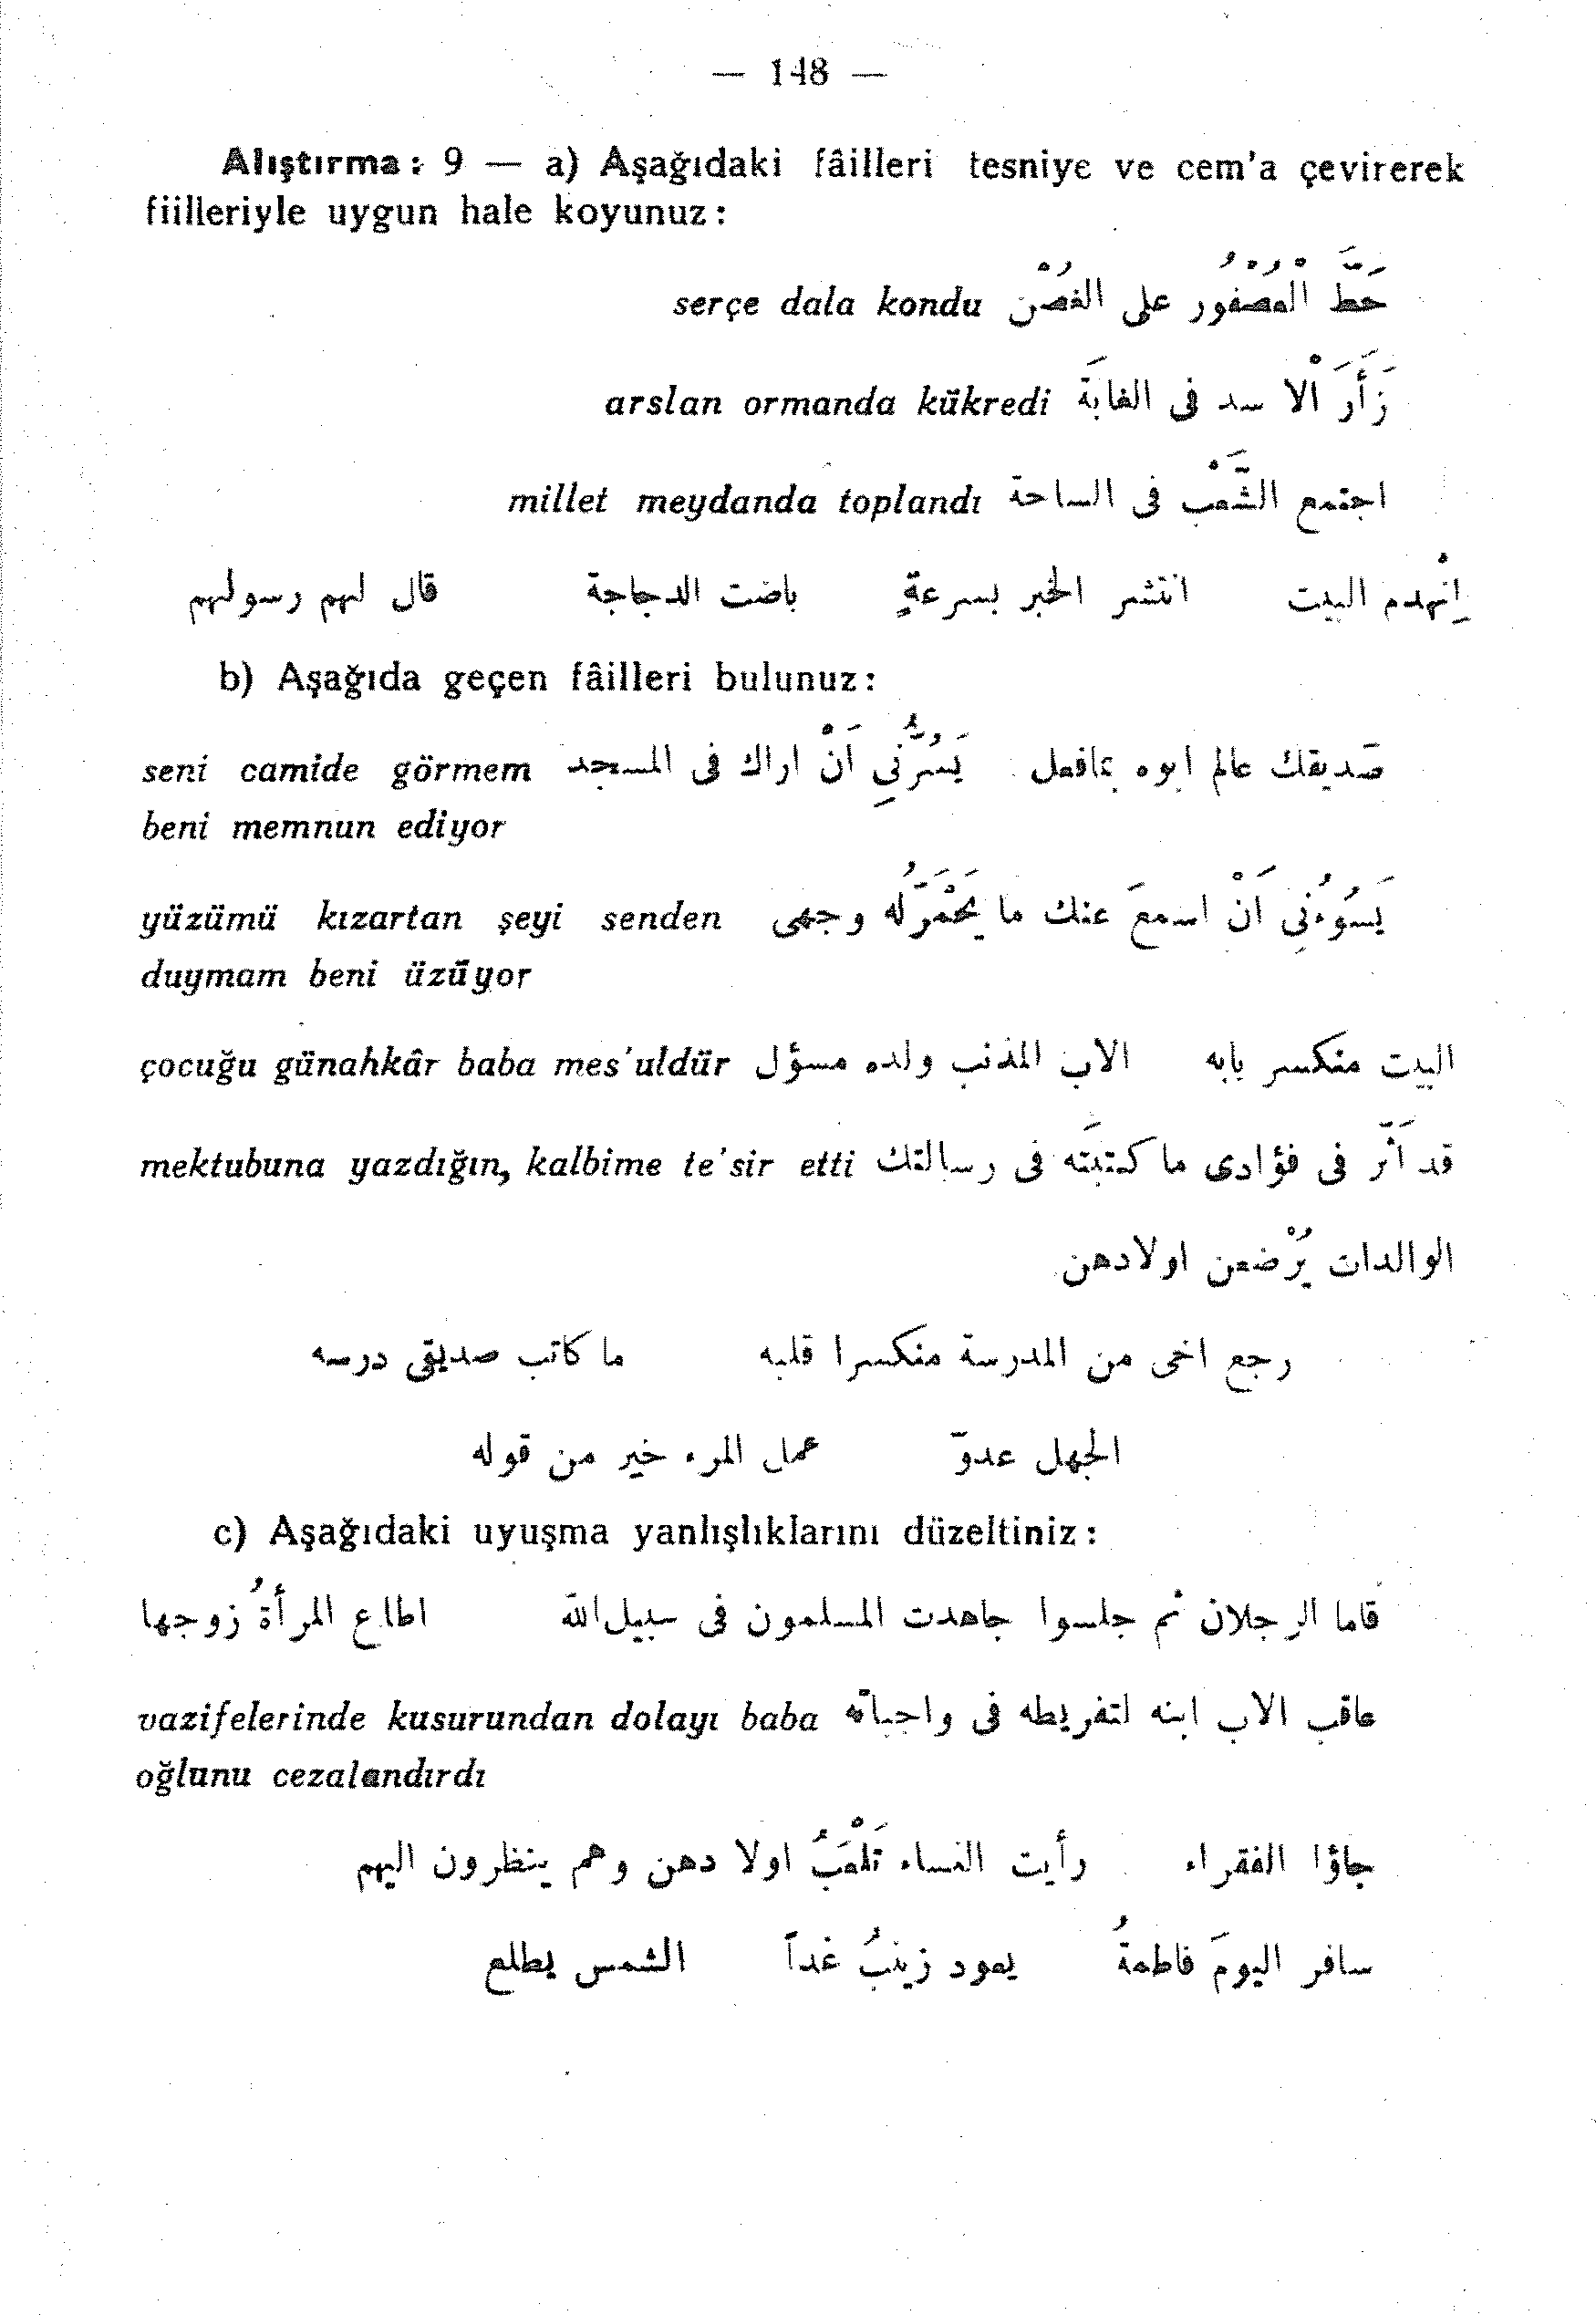 — 148 —
Alıştırma: 9 — a) Aşağıdaki fâilleri tesniye ve cem'a çevirerek
fiilleriyle uygun hale koyunuz:
حَطَّ الْعُصْفُور على الغُصْن serçe dala kondu
زَأَرَ الْاسد فى الغابَة arslan ormanda kükredi
اجتمع الشَّعْب فى الساحة millet meydanda toplandı
اِنْهدم البيت انتشر الخبر بسرعةٍ باضت الدجاجة قال لهم رسولهم
b) Aşağıda geçen fâilleri bulunuz:
صديقك عالم ابوه بمافعل يَسُرُّنِي اَنْ اراك فى المسجد seni camide görmem
beni memnun ediyor
يَسُوءُنِى اَنْ اسمعَ عنك ما يَحْمَرُّ له وجهى yüzümü kızartan şeyi senden
duymam beni üzüyor
البيت منكسر بابه الاب المذنب ولده مسؤل çocuğu günahkâr baba mes'uldür
قد اَثَّر فى فؤادى ما كتبتَه فى رسالتك mektubuna yazdığın, kalbime te'sir etti
الوالدات يُرْضعن اولادهن
رجع اخى من المدرسة منكسرا قلبه ما كاتب صديقى درسه
الجهل عدوّ عمل المرء خير من قوله
c) Aşağıdaki uyuşma yanlışlıklarını düzeltiniz:
قاما الرجلان ثم جلسوا جاهدت المسلمون فى سبيل الله اطاع المرأةُ زوجها
عاقب الاب ابنه لتفريطه فى واجباته vazifelerinde kusurundan dolayı baba
oğlunu cezalandırdı
جاؤا الفقراء رأيت النساء تَلْعَبُ اولادهن وهم ينظرون اليهم
سافر اليومَ فاطمةُ يعود زينبُ غداً الشمس يطلع